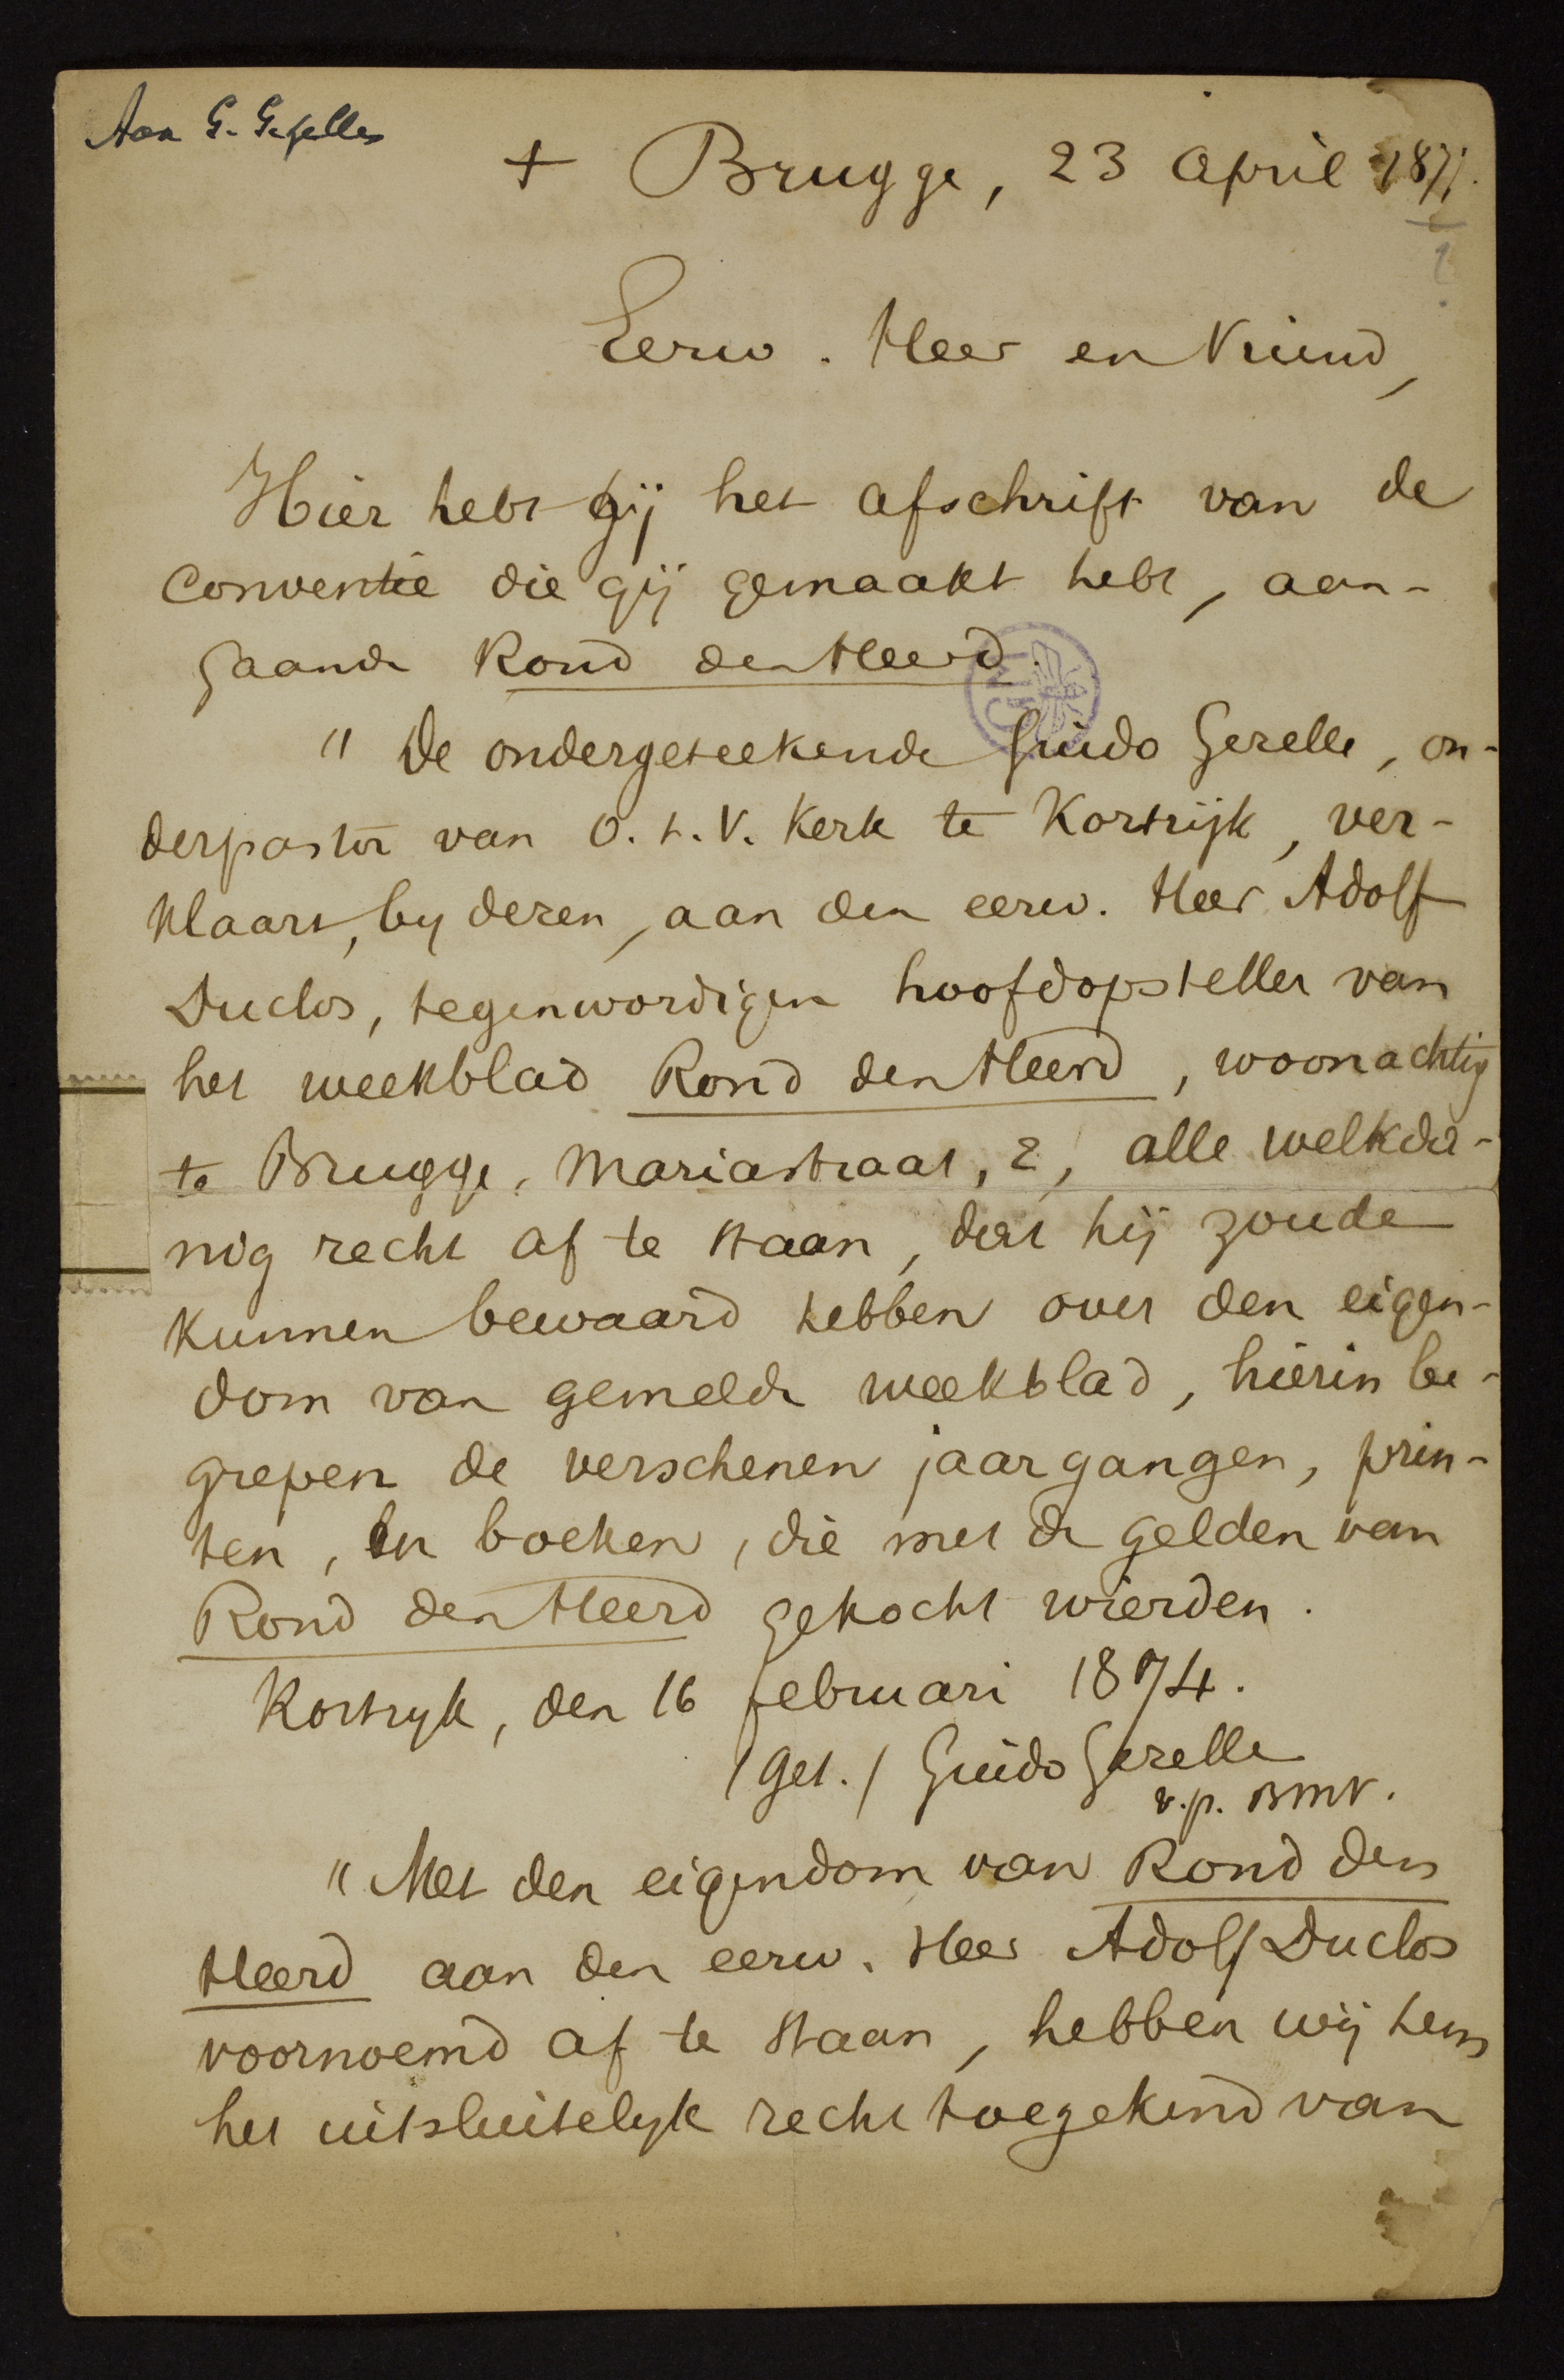 Aan G. Gezelle
+ Brugge, 23 April 1877.
?
Eerw. Heer en Vriend,
Hier hebt gij het afschrift van de
Conventie die gij gemaakt hebt, aan-
gaande Rond den Heerd.
"De ondergeteekende Guido Gezelle, on-
derpastor van O.L.V. Kerk te Kortrijk, ver-
klaart, by dezen, aan den eerw. Heer Adolf
Duclos, tegenwordigen hoofdopsteller van
het weekblad Rond den Heerd, woonachtig
te Brugge, Mariastraat, 2, alle welkda-
nig recht af te staan, dat hij zoude
kunnen bewaard hebben over den eigen-
dom van gemelde weekblad, hierin be-
grepen de verschenen jaargangen, prin-
ten, en boeken, die met de gelden van
Rond den Heerd gekocht wierden.
Kortryk, den 16 februari 1874.
(Get.) Guido Gezelle
v.p. BMV.
"Met den eigendom van Rond den
Heerd aan den eerw. Heer Adolf Duclos
voornoemd af te staan, hebben wij hem
het uitsluitelyk recht toegekend van